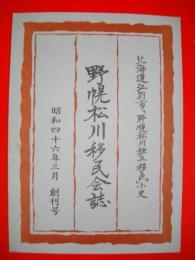 北海道江別市、野幌松川独立移民小史
野幌松川移民会誌
昭和四十六年三月　創刊号